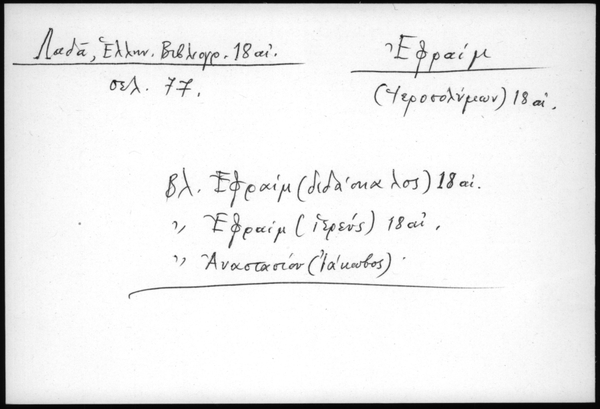 Λαδᾶ, Ἑλλην. Βιβλιογρ. 18 αἰ.
σελ. 77.
Ἐφραίμ
(Ἱεροσολύμων) 18 αἰ.
Βλ. Ἐφραίμ (διδάσκαλος) 18 αἰ.
„ Ἐφραίμ (ἱερεύς) 18 αἰ.
„ Ἀναστασίου (Ἰάκωβος).